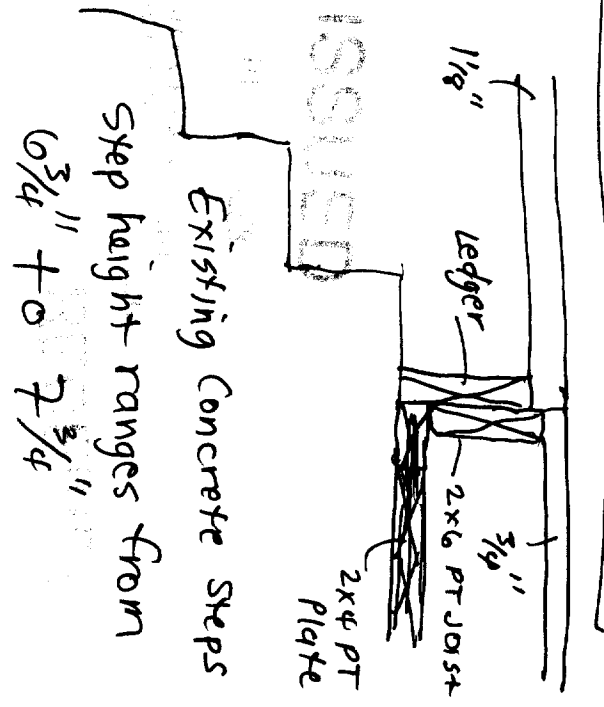 1 1/8"
Ledger
3/4"
2x6 PT Joist
2x4 PT
Plate
ISSUED
Existing Concrete Steps
Step height ranges from
6 3/4" to 7 3/4"